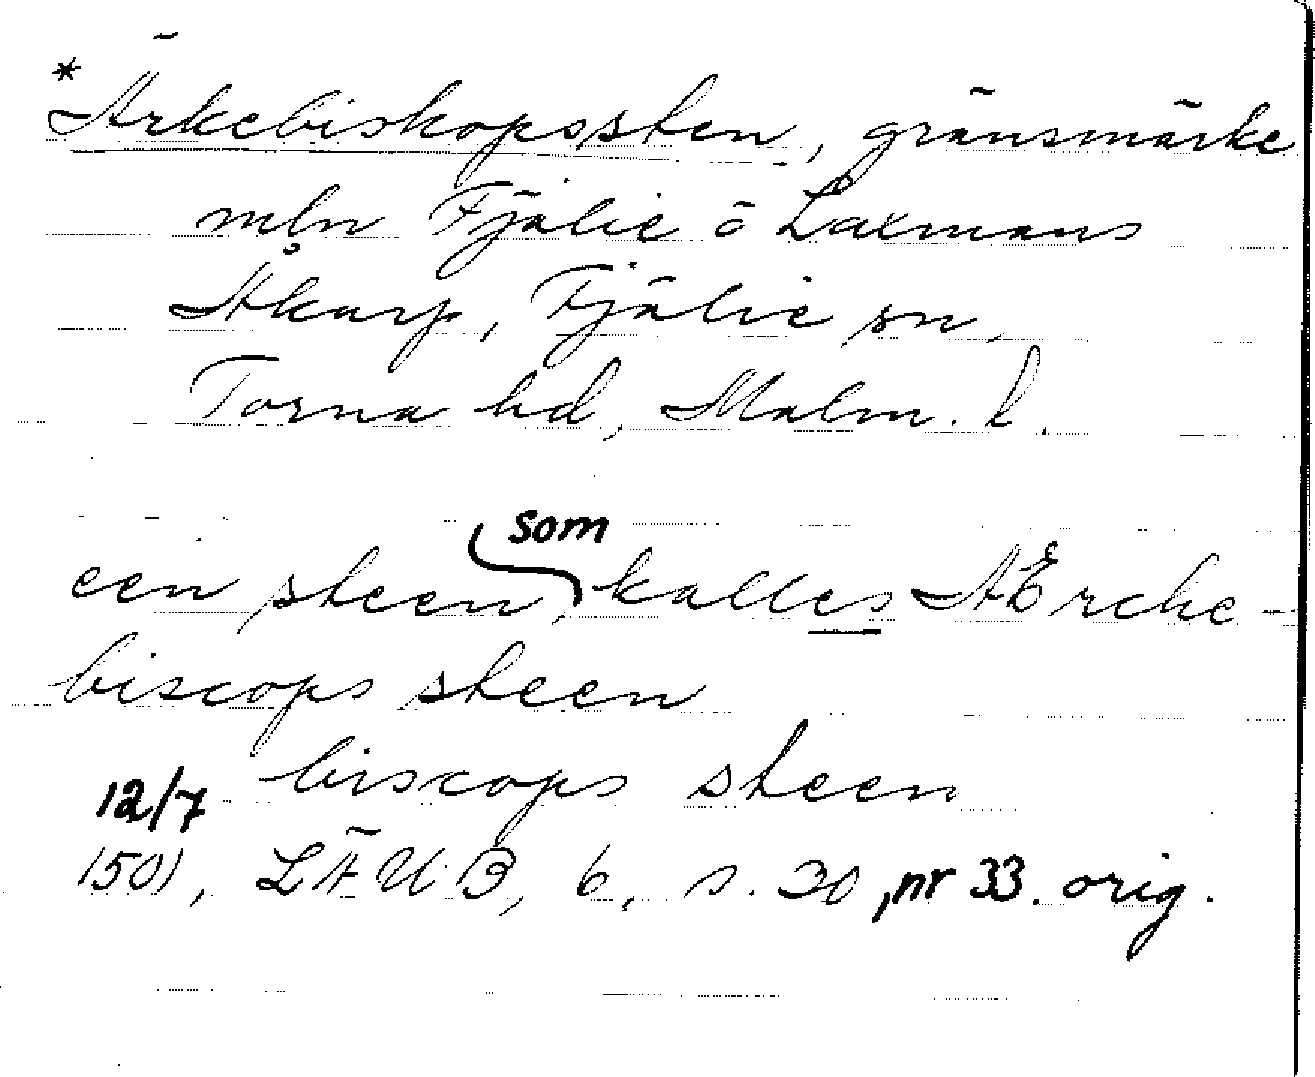 *Ärkebiskopssten, gränsmärke
mln Fjälie o Laxmans
Åkarp, Fjälie sn,
Torna hd, Malm. l.
som
een steen, kalles AErche-
biscops steen
biscops steen
12/7
1501, LÄUB, 6, s. 30, nr 33. orig.